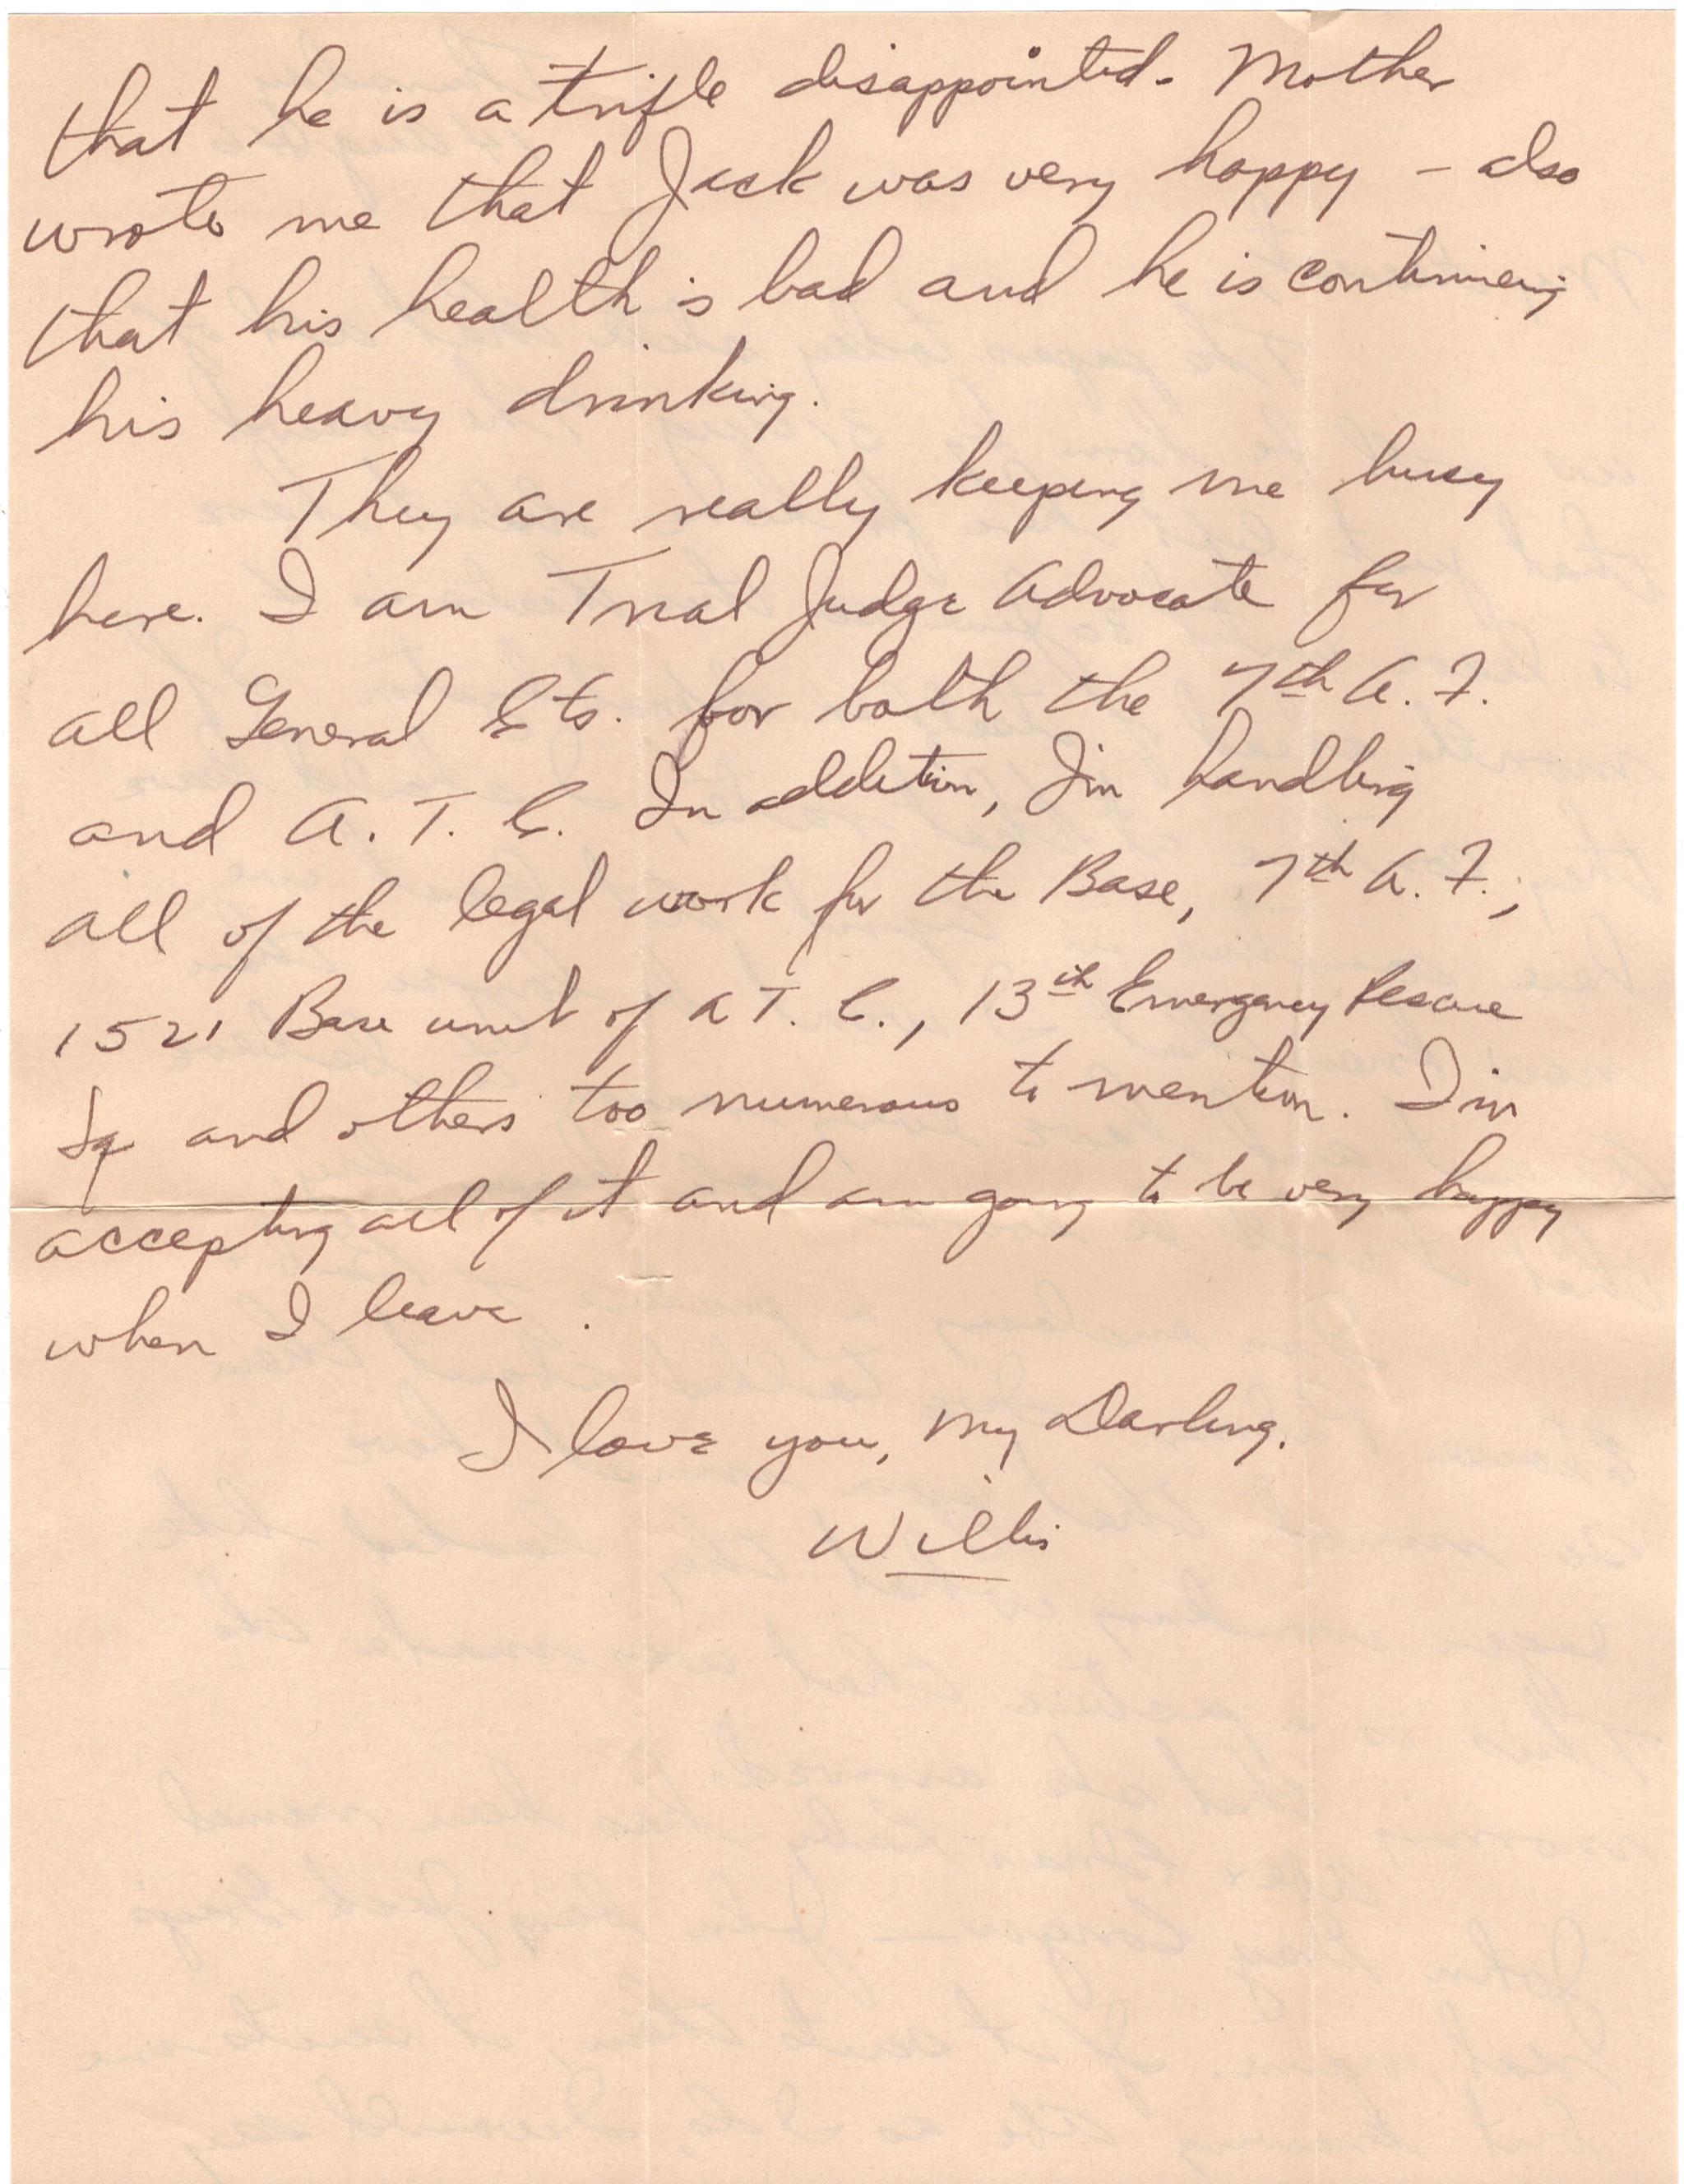 that he is a trifle disappointed. Mother
wrote me that Jack was very happy – also
that his health is bad and he is continuing
his heavy drinking.
They are really keeping me busy
here. I am Trial Judge Advocate for
all General Cts. for both the 7th A. F.
and A. T. C. In addition, I'm handling
all of the legal work for the Base, 7th A. F.,
1521 Base unit of A T. C., 13th Emergency Rescue
Sq and others too numerous to mention. I'm
accepting all of it and am going to be very happy
when I leave.
I love you, my Darling.
Willis